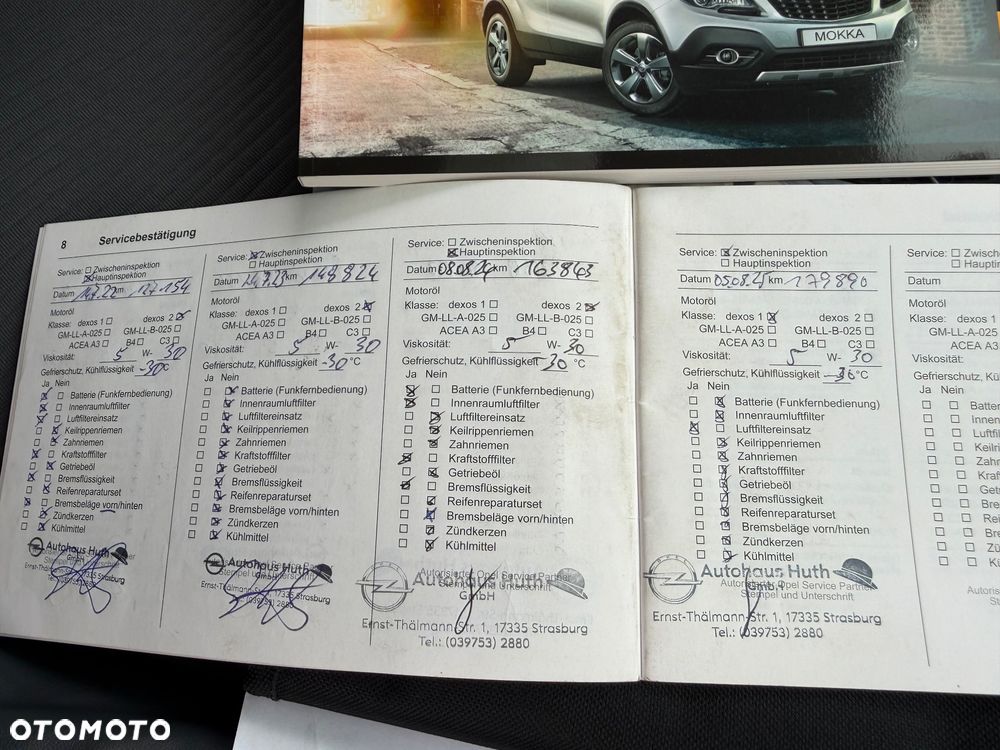 MOKKA
8 Servicebestätigung
Service: Zwischeninspektion
Hauptinspektion
Datum 14.7.22 km 127 154
Motoröl
Klasse: dexos 1 dexos 2
GM-LL-A-025 GM-LL-B-025
ACEA A3 B4 C3
Viskosität: 5 W- 30
Gefrierschutz, Kühlflüssigkeit -30 °C
Ja Nein
Batterie (Funkfernbedienung)
Innenraumluftfilter
Luftfiltereinsatz
Keilrippenriemen
Zahnriemen
Kraftstofffilter
Getriebeöl
Bremsflüssigkeit
Reifenreparaturset
Bremsbeläge vorn/hinten
Zündkerzen
Kühlmittel
Autohaus Huth
GmbH
Ernst-Thälmann-Str. 1, 17335 Strasburg
Service: Zwischeninspektion
Hauptinspektion
Datum km 148824
Motoröl
Klasse: dexos 1 dexos 2
GM-LL-A-025 GM-LL-B-025
ACEA A3 B4 C3
Viskosität: 5 W- 30
Gefrierschutz, Kühlflüssigkeit -30 °C
Ja Nein
Batterie (Funkfernbedienung)
Innenraumluftfilter
Luftfiltereinsatz
Keilrippenriemen
Zahnriemen
Kraftstofffilter
Getriebeöl
Bremsflüssigkeit
Reifenreparaturset
Bremsbeläge vorn/hinten
Zündkerzen
Kühlmittel
Autohaus Huth
Stempel und Unterschrift
Ernst-Thälmann-Str. 1, 17335 Strasburg
(039753) 2880
Service: Zwischeninspektion
Hauptinspektion
Datum 08.08.24 km 163843
Motoröl
Klasse: dexos 1 dexos 2
GM-LL-A-025 GM-LL-B-025
ACEA A3 B4 C3
Viskosität: 5 W- 30
Gefrierschutz, Kühlflüssigkeit -30 °C
Ja Nein
Batterie (Funkfernbedienung)
Innenraumluftfilter
Luftfiltereinsatz
Keilrippenriemen
Zahnriemen
Kraftstofffilter
Getriebeöl
Bremsflüssigkeit
Reifenreparaturset
Bremsbeläge vorn/hinten
Zündkerzen
Kühlmittel
Autorisierter Opel Service Partner
Autohaus Huth
Stempel und Unterschrift
GmbH
Ernst-Thälmann-Str. 1, 17335 Strasburg
Tel.: (039753) 2880
Service: Zwischeninspektion
Hauptinspektion
Datum 05.08.25 km 179890
Motoröl
Klasse: dexos 1 dexos 2
GM-LL-A-025 GM-LL-B-025
ACEA A3 B4 C3
Viskosität: 5 W- 30
Gefrierschutz, Kühlflüssigkeit °C
Ja Nein
Batterie (Funkfernbedienung)
Innenraumluftfilter
Luftfiltereinsatz
Keilrippenriemen
Zahnriemen
Kraftstofffilter
Getriebeöl
Bremsflüssigkeit
Reifenreparaturset
Bremsbeläge vorn/hinten
Zündkerzen
Kühlmittel
Autohaus Huth
Autorisierter Opel Service Partner
Stempel und Unterschrift
GmbH
Ernst-Thälmann-Str. 1, 17335 Strasburg
Tel.: (039753) 2880
Service:
Datum
Motoröl
Klasse: dexos
GM-LL-A-025
ACEA A
Viskosität:
Gefrierschutz, Kü
Ja Nein
Batte
Innen
Luftfi
Keilri
Zahn
Kraf
Get
Bre
Rei
Bre
Zün
Kü
OTOMOTO